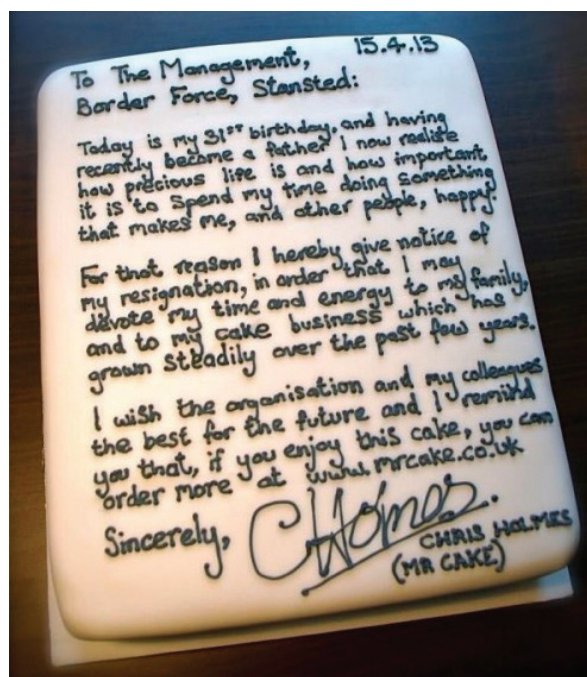 To The Management, 15.4.13
Border Force, Stansted:
Today is my 31st birthday, and having
recently become a father I now realise
how precious life is and how important
it is to spend my time doing something
that makes me, and other people, happy.
For that reason I hereby give notice of
my resignation, in order that I may
devote my time and energy to my family,
and to my cake business which has
grown steadily over the past few years.
I wish the organisation and my colleagues
the best for the future and I remind
you that, if you enjoy this cake, you can
order more at www.mrcake.co.uk
Sincerely, CHolmes.
CHRIS HOLMES
(MR CAKE)